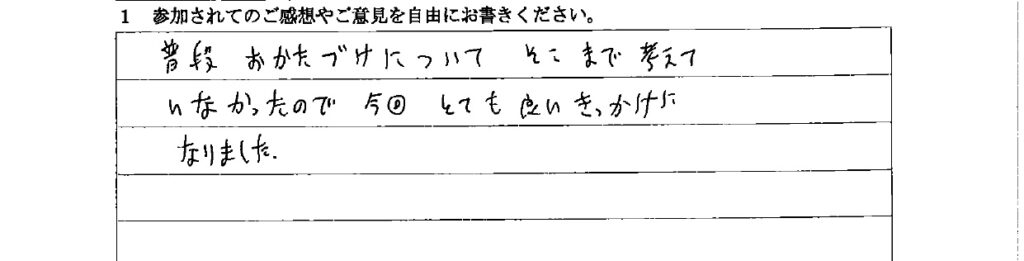 1 参加されてのご感想やご意見を自由にお書きください。
普段 おかたづけについて そこまで考えて
いなかったので 今回 とても良いきっかけに
なりました.